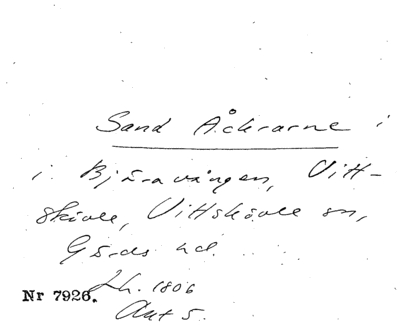 Sand Åckrarne i
i Bjäravången, Vitt-
skövle, Vittskövle sn,
Gärds hd.
Lh. 1806
Nr 7926. Akt 5.